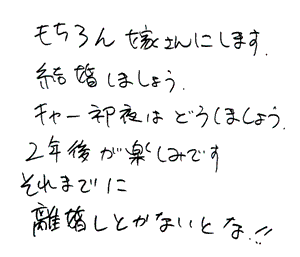 もちろん嫁さんにします.
結婚しましょう.
キャー初夜はどうしましょう.
2年後が楽しみです
それまでに
離婚しとかないとな!!